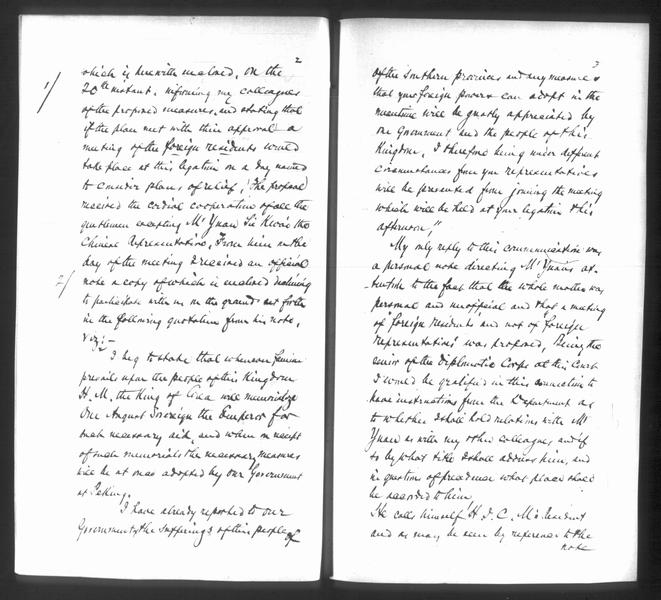 2
1/
which is herewith enclosed, on the
20th instant, informing my colleagues
of the proposed measures, and stating that
if the plan met with their approval a
meeting of the foreign residents would
take place at this legation on a day named
to consider plans of relief. The proposal
received the cordial cooperation of all the
gentlemen excepting Mr Yuan Sii Kwai the
Chinese Representative. From him on the
day of the meeting I received an official
2/
note a copy of which is enclosed declining
to participate with us on the grounds set forth
in the following quotation from his note,
viz:-
I beg to state that whenever famine
prevails upon the people of this Kingdom
H. M. the King of will memorialize
Our August Sovereign the Emperor for
such necessary aid, and when in receipt
of such memorials the necessary measures
will be at once adopted by our Government
at Peking.
I have already reported to our
Government the sufferings of the people of
3
of the Southern provinces and any measures
that your foreign powers can adopt in the
meantime will be greatly appreciated by
our Government and the people of this
Kingdom, I therefore being under different
circumstances from you representatives
will be prevented from joining the meeting
which will be held at your legation this
afternoon."
My only reply to this communication was
a personal note directing Mr Yuan's at-
tention to the fact that the whole matter was
personal and unofficial and that a meeting
of "foreign residents" and not of "foreign
representatives" was proposed. Being the
senior of the Diplomatic Corps at this Court
I would be gratified in this connection to
have instructions from the Department as
to whether I shall hold relations with Mr
Yuan as with my other colleagues and if
so by what title I shall address him, and
in questions of precedence what place shall
be accorded to him.
He calls himself H. I. C. M's Resident
and as may be seen by reference to the
note